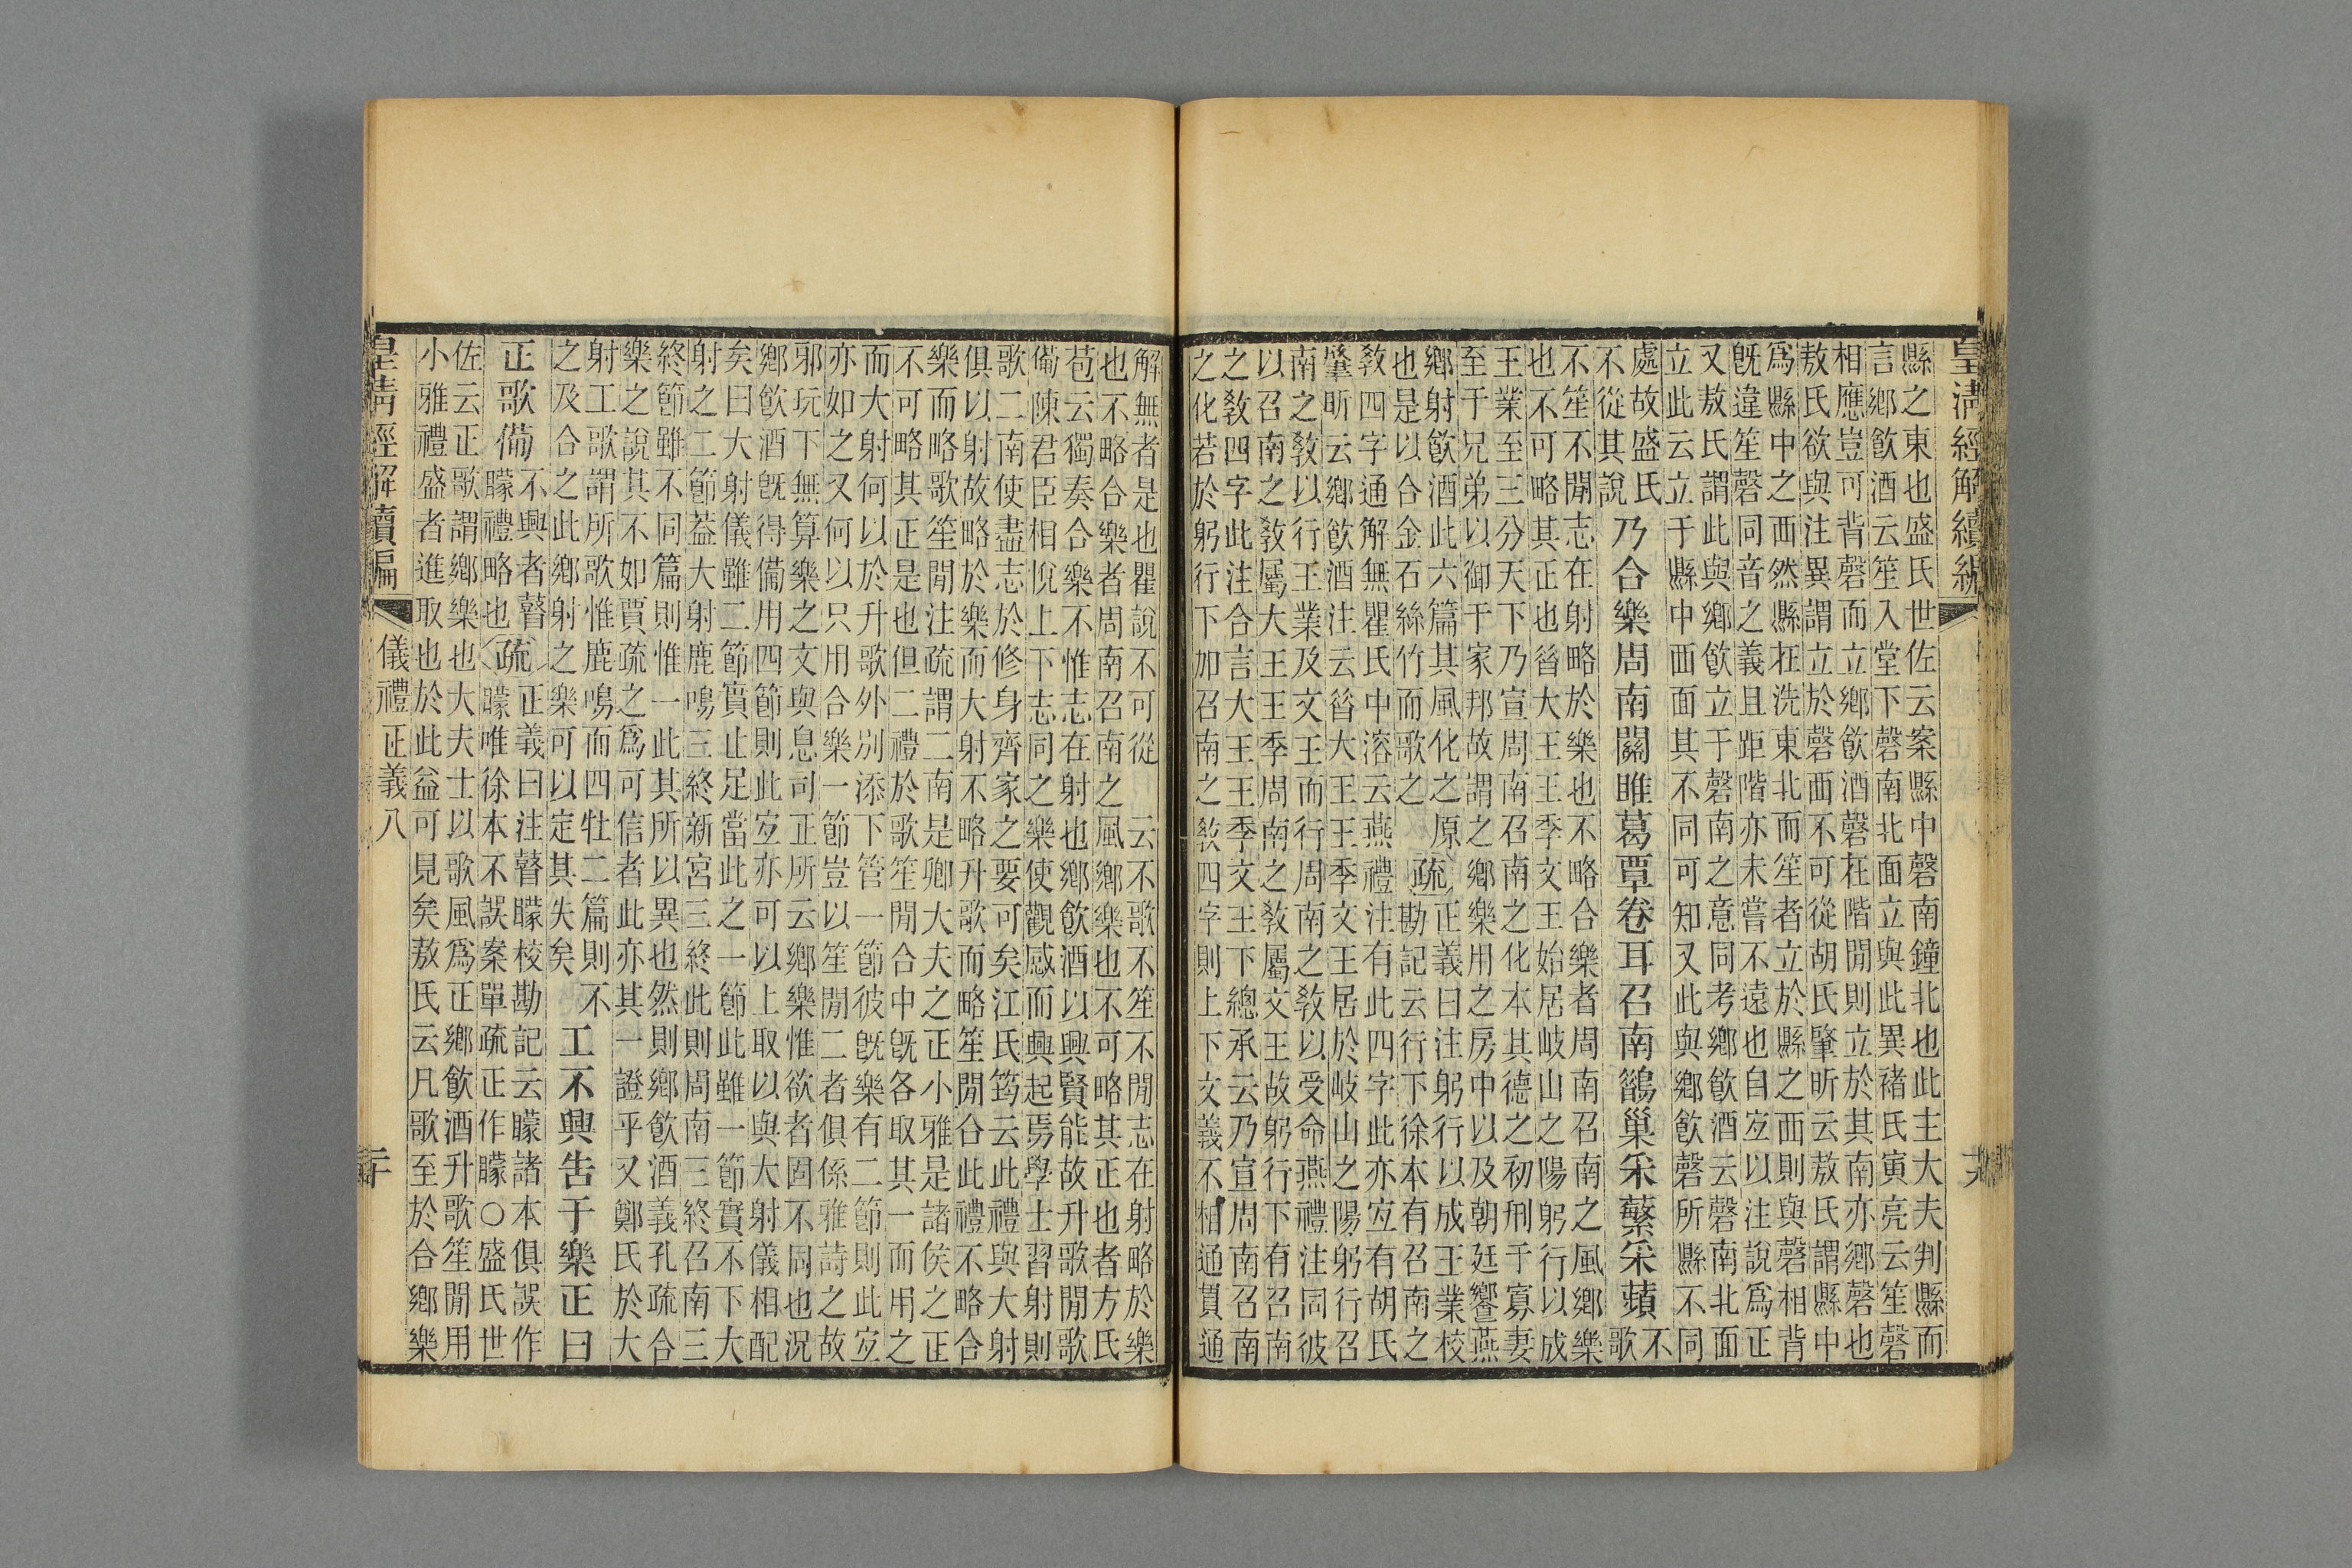 皇清經解續編
縣之東也盛氏世佐云案縣中磬南鐘北也此主大夫判縣而
言鄉飲酒云笙入堂下磬南北面立與此異褚氏寅亮云笙磬
相應豈可背磬而立鄉飲酒磬在階閒則立於其南亦鄉磬也
敖氏欲與注異謂立於磬西不可從胡氏肇昕云敖氏謂縣中
爲縣中之西然縣在洗東北而笙者立於縣之西則與磬相背
旣違笙磬同音之義且距階亦未嘗不遠也自宜以注說爲正
又敖氏謂此與鄉飲立于磬南之意同考鄉飲酒云磬南北面
立此云立于縣中西面其不同可知又此與鄉飲磬所縣不同
處故盛氏
不從其說
乃合樂周南關睢葛覃卷耳召南鵲巢采蘩采蘋
不
歌
不笙不閒志在射略於樂也不略合樂者周南召南之風鄉樂
也不可略其正也昝大王王季文王始居岐山之陽躬行以成
王業至三分天下乃宣周南召南之化本其德之初刑于寡妻
至于兄弟以御于家邦故謂之鄉樂用之房中以及朝廷饗燕
鄉射飲酒此六篇其風化之原
疏
正義曰注躬行以成王業校
也是以合金石絲竹而歌之
勘記云行下徐本有召南之
敎四字通解無瞿氏中溶云燕禮注有此四字此亦宜有胡氏
肇昕云鄉飲酒注云昝大王王季文王居於岐山之陽躬行召
南之敎以行王業及文王而行周南之敎以受命燕禮注同彼
以召南之敎屬大王王季周南之敎屬文王故躬行下有召南
之敎四字此注合言大王王季文王下總承云乃宣周南召南
之化若於躬行下加召南之敎四字則上下文義不相通貫通
解無者是也瞿說不可從
云不歌不笙不閒志在射略於樂
也不略合樂者周南召南之風鄉樂也不可略其正也者方氏
苞云獨奏合樂不惟志在射也鄉飲酒以興賢能故升歌閒歌
僃陳君臣相悅上下志同之樂使觀感而興起焉學士習射則
歌二南使盡志於修身齊家之要可矣江氏筠云此禮與大射
俱以射故略於樂而大射不略升歌而略笙閒合此禮不略合
樂而略歌笙閒注疏謂二南是卿大夫之正小雅是諸侯之正
不可略其正是也但二禮於歌笙閒合中旣各取其一而用之
而大射何以於升歌外別添下管一節彼旣樂有二節則此宜
亦如之又何以只用合樂一節豈以笙閒二者俱係雅詩之故
邪玩下無算樂之文與息司正所云鄉樂惟欲者固不同也況
鄉飲酒旣得備用四節則此宜亦可以上取以與大射儀相配
矣曰大射儀雖二節實止足當此之一節此雖一節實不下大
射之二節葢大射鹿鳴三終新宮三終此則周南三終召南三
終節雖不同篇則惟一此其所以異也然則鄉飲酒義孔疏合
樂之說其不如賈疏之爲可信者此亦其一證乎又鄭氏於大
射工歌謂所歌惟鹿鳴而四牡二篇則不
之及合之此鄉射之樂可以定其失矣
工不興吿于樂正曰
正歌備
不興者瞽
矇禮略也
疏
正義曰注瞽矇校勘記云矇諸本俱誤作
矇唯徐本不誤案單疏正作矇〇盛氏世
佐云正歌謂鄉樂也大夫士以歌風爲正鄉飲酒升歌笙閒用
小雅禮盛者進取也於此益可見矣敖氏云凡歌至於合鄉樂
皇淸經解續編
儀禮正義八